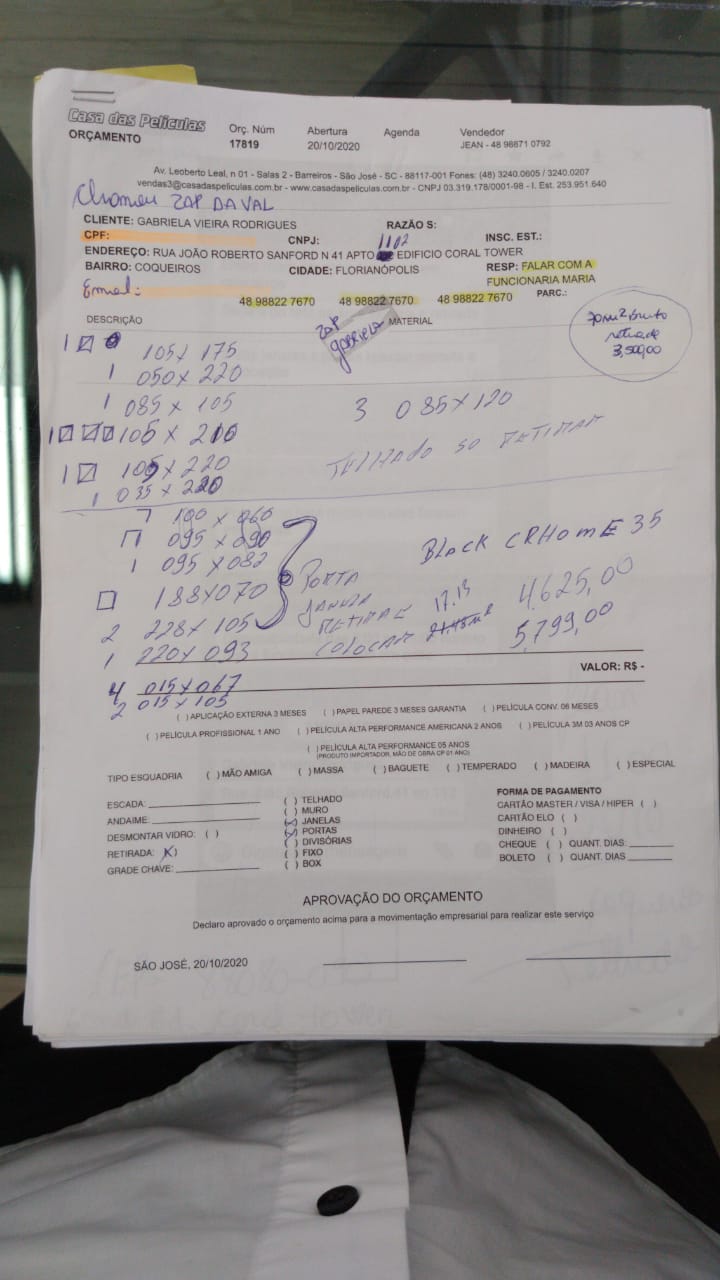 Casa das Películas
ORÇAMENTO
Orç. Núm Abertura Agenda Vendedor
17819 20/10/2020 JEAN - 48 98671 0792
Av. Leoberto Leal, n 01 - Salas 2 - Barreiros - São José - SC - 88117-001 Fones: (48) 3240.0605 / 3240.0207
vendas3@casadaspeliculas.com.br - www.casadaspeliculas.com.br - CNPJ 03.319.178/0001-98 - I. Est. 253.951.640
Chamou ZAP DA VAL
CLIENTE: GABRIELA VIEIRA RODRIGUES RAZÃO S:
CPF: CNPJ: 1102 INSC. EST.:
ENDEREÇO: RUA JOÃO ROBERTO SANFORD N 41 APTO EDIFICIO CORAL TOWER
BAIRRO: COQUEIROS CIDADE: FLORIANÓPOLIS RESP: FALAR COM A
FUNCIONARIA MARIA
Email:
48 98822 7670 48 98822 7670 48 98822 7670 PARC.:
DESCRIÇÃO ZAP gabriela MATERIAL
70 m2 bruto
retirada
3,500,00
1 105 x 175
1 050 x 220
1 085 x 105
3 085 x 120
105 x 210
TELHADO SO RETIRAR
1 105 x 220
1 035 x 220
100 x 060
095 x 090
1 095 x 082
BLACK CRHOME 35
188 x 070
PORTA
JANELA
RETIRAR 17.13 4.625,00
2 228 x 105
COLOCAR 5,799,00
1 220 x 093
VALOR: R$ -
4 015 x 067
2 015 x 105
( ) APLICAÇÃO EXTERNA 3 MESES ( ) PAPEL PAREDE 3 MESES GARANTIA ( ) PELÍCULA CONV. 06 MESES
( ) PELÍCULA PROFISSIONAL 1 ANO ( ) PELÍCULA ALTA PERFORMANCE AMERICANA 2 ANOS ( ) PELÍCULA 3M 03 ANOS CP
( ) PELÍCULA ALTA PERFORMANCE 05 ANOS
(PRODUTO IMPORTADOR, MÃO DE OBRA CP 01 ANO)
TIPO ESQUADRIA ( ) MÃO AMIGA ( ) MASSA ( ) BAGUETE ( ) TEMPERADO ( ) MADEIRA ( ) ESPECIAL
ESCADA:
ANDAIME:
DESMONTAR VIDRO: ( )
RETIRADA: (X)
GRADE CHAVE:
( ) TELHADO
( ) MURO
(x) JANELAS
(x) PORTAS
( ) DIVISÓRIAS
( ) FIXO
( ) BOX
FORMA DE PAGAMENTO
CARTÃO MASTER / VISA / HIPER ( )
CARTÃO ELO ( )
DINHEIRO ( )
CHEQUE ( ) QUANT. DIAS:
BOLETO ( ) QUANT. DIAS
APROVAÇÃO DO ORÇAMENTO
Declaro aprovado o orçamento acima para a movimentação empresarial para realizar este serviço
SÃO JOSÉ, 20/10/2020